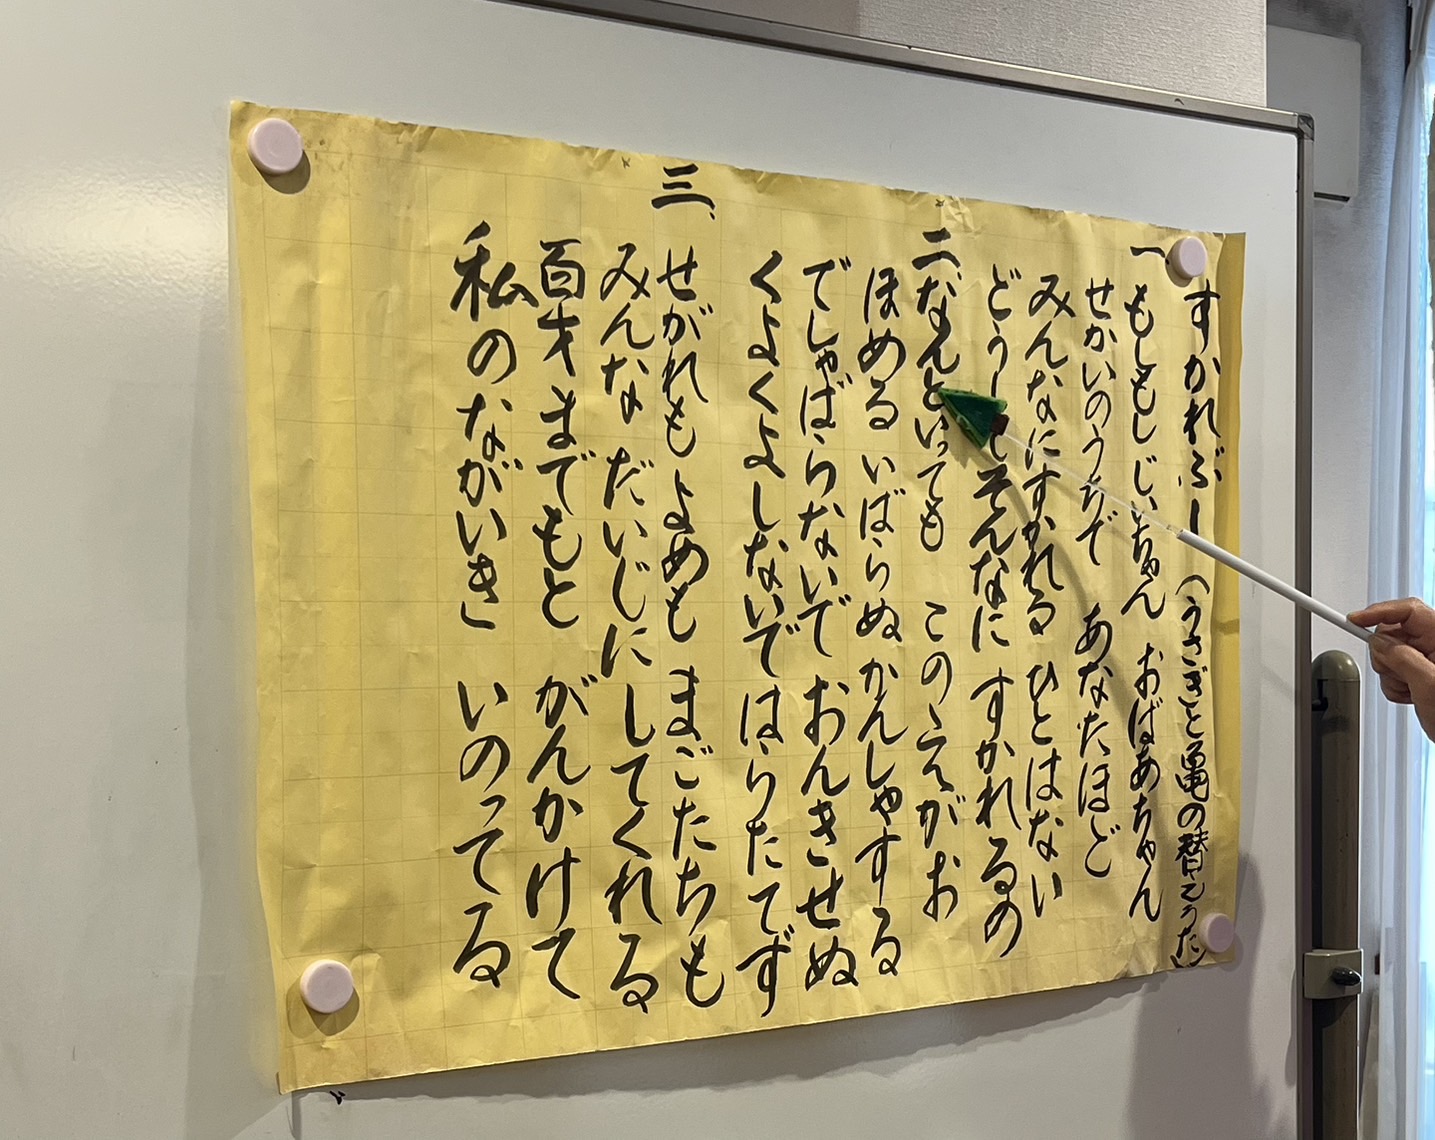 すかれぶし(うさぎと亀の替えうた)
一、もしもしじいちゃん おばあちゃん
せかいのうちで あなたほど
みんなにすかれる ひとはない
どうしてそんなに すかれるの
二、なんといっても このえがお
ほめる いばらぬ かんしゃする
でしゃばらないで おんきせぬ
くよくよしないで はらたてず
三、せがれもよめも まごたちも
みんな だいじに してくれる
百才までもと がんかけて
私のながいき いのってる